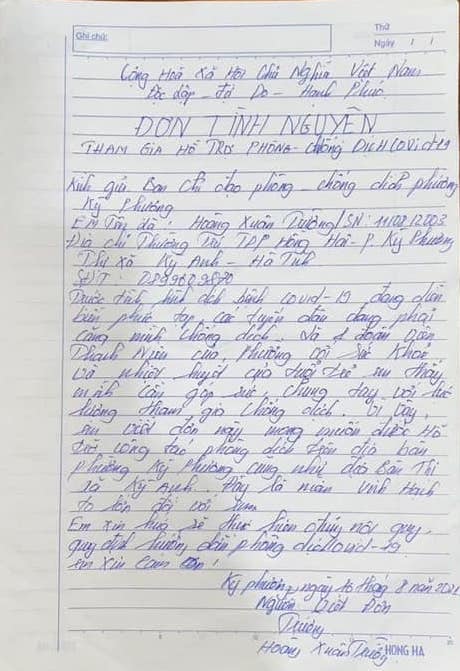 Ghi chú:
Thứ
Ngày / /
Cộng Hoà Xã Hội Chủ Nghĩa Việt Nam
Độc Lập - Tự Do - Hạnh Phúc
ĐƠN TÌNH NGUYỆN
THAM GIA HỖ TRỢ PHÒNG - CHỐNG DỊCH COVID-19
Kính gửi: Ban chỉ đạo phòng - chống dịch phường
Kỳ Phương
Em Tên là: Hoàng Xuân Trường / SN: 11/08/2003
Địa chỉ Thường Trú TDP Hồng Hải - P. Kỳ Phương
Thị Xã Kỳ Anh - Hà Tĩnh
SĐT:
Trước tình hình dịch bệnh Covid-19 đang diễn
biến phức tạp, các tuyến đầu đang phải
căng mình chống dịch. Là 1 đoàn viên
Thanh Niên của phường với sức khoẻ
và nhiệt huyết của tuổi trẻ em thấy
mình cần góp sức, chung tay với lực
lượng tham gia chống dịch. Vì vậy,
em viết đơn này mong muốn được Hỗ
trợ công tác phòng dịch trên địa bàn
phường Kỳ Phương cũng như địa Bàn Thị
xã Kỳ Anh. Đây là niềm vinh Hạnh
to lớn đối với em
Em xin hứa sẽ thực hiện đúng nội quy,
quy định hướng dẫn phòng dịch Covid-19
em xin cảm ơn!
Kỳ phương, ngày 16 tháng 8 năm 2021
Người Viết Đơn
Trường
Hoàng Xuân Trường
HONG HA